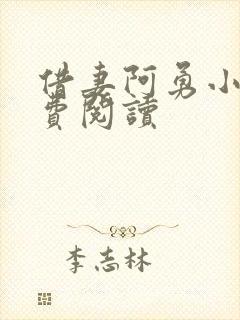 借妻阿勇小
費閱讀
李志林